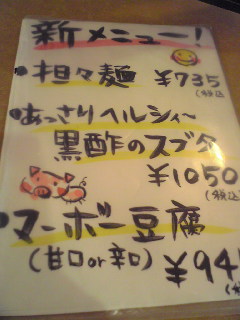 新メニュー!
・担々麺 ¥735
(税込
・あっさりヘルシィ〜
黒酢のスブタ
¥1050
(税込
・マーボー豆腐
(甘口or辛口) ¥94